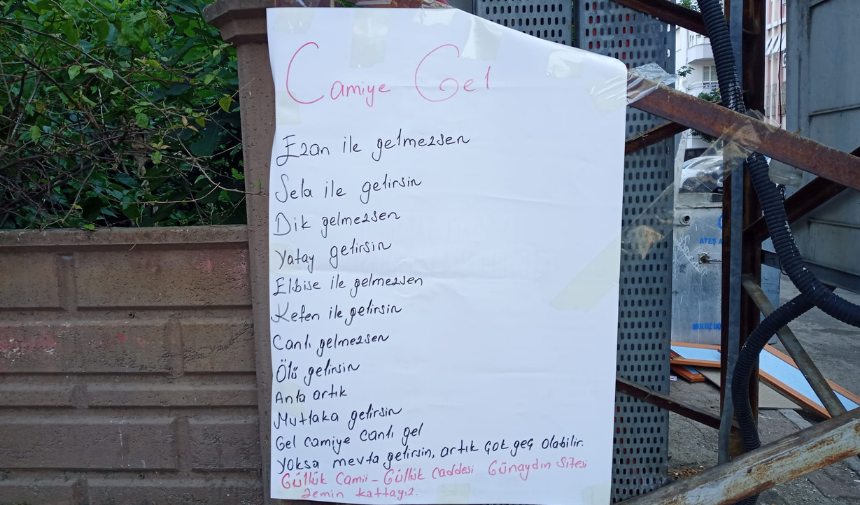 Camiye Gel
Ezan ile gelmezsen
Sela ile gelirsin
Dik gelmezsen
Yatay gelirsin
Elbise ile gelmezsen
Kefen ile gelirsin
Canlı gelmezsen
Ölü gelirsin
Anla artık
Mutlaka gelirsin
Gel camiye canlı gel
Yoksa mevta gelirsin, artık çok geç olabilir.
Güllük Camii - Güllük Caddesi Günaydın Sitesi
zemin kattayız.
ATEŞ